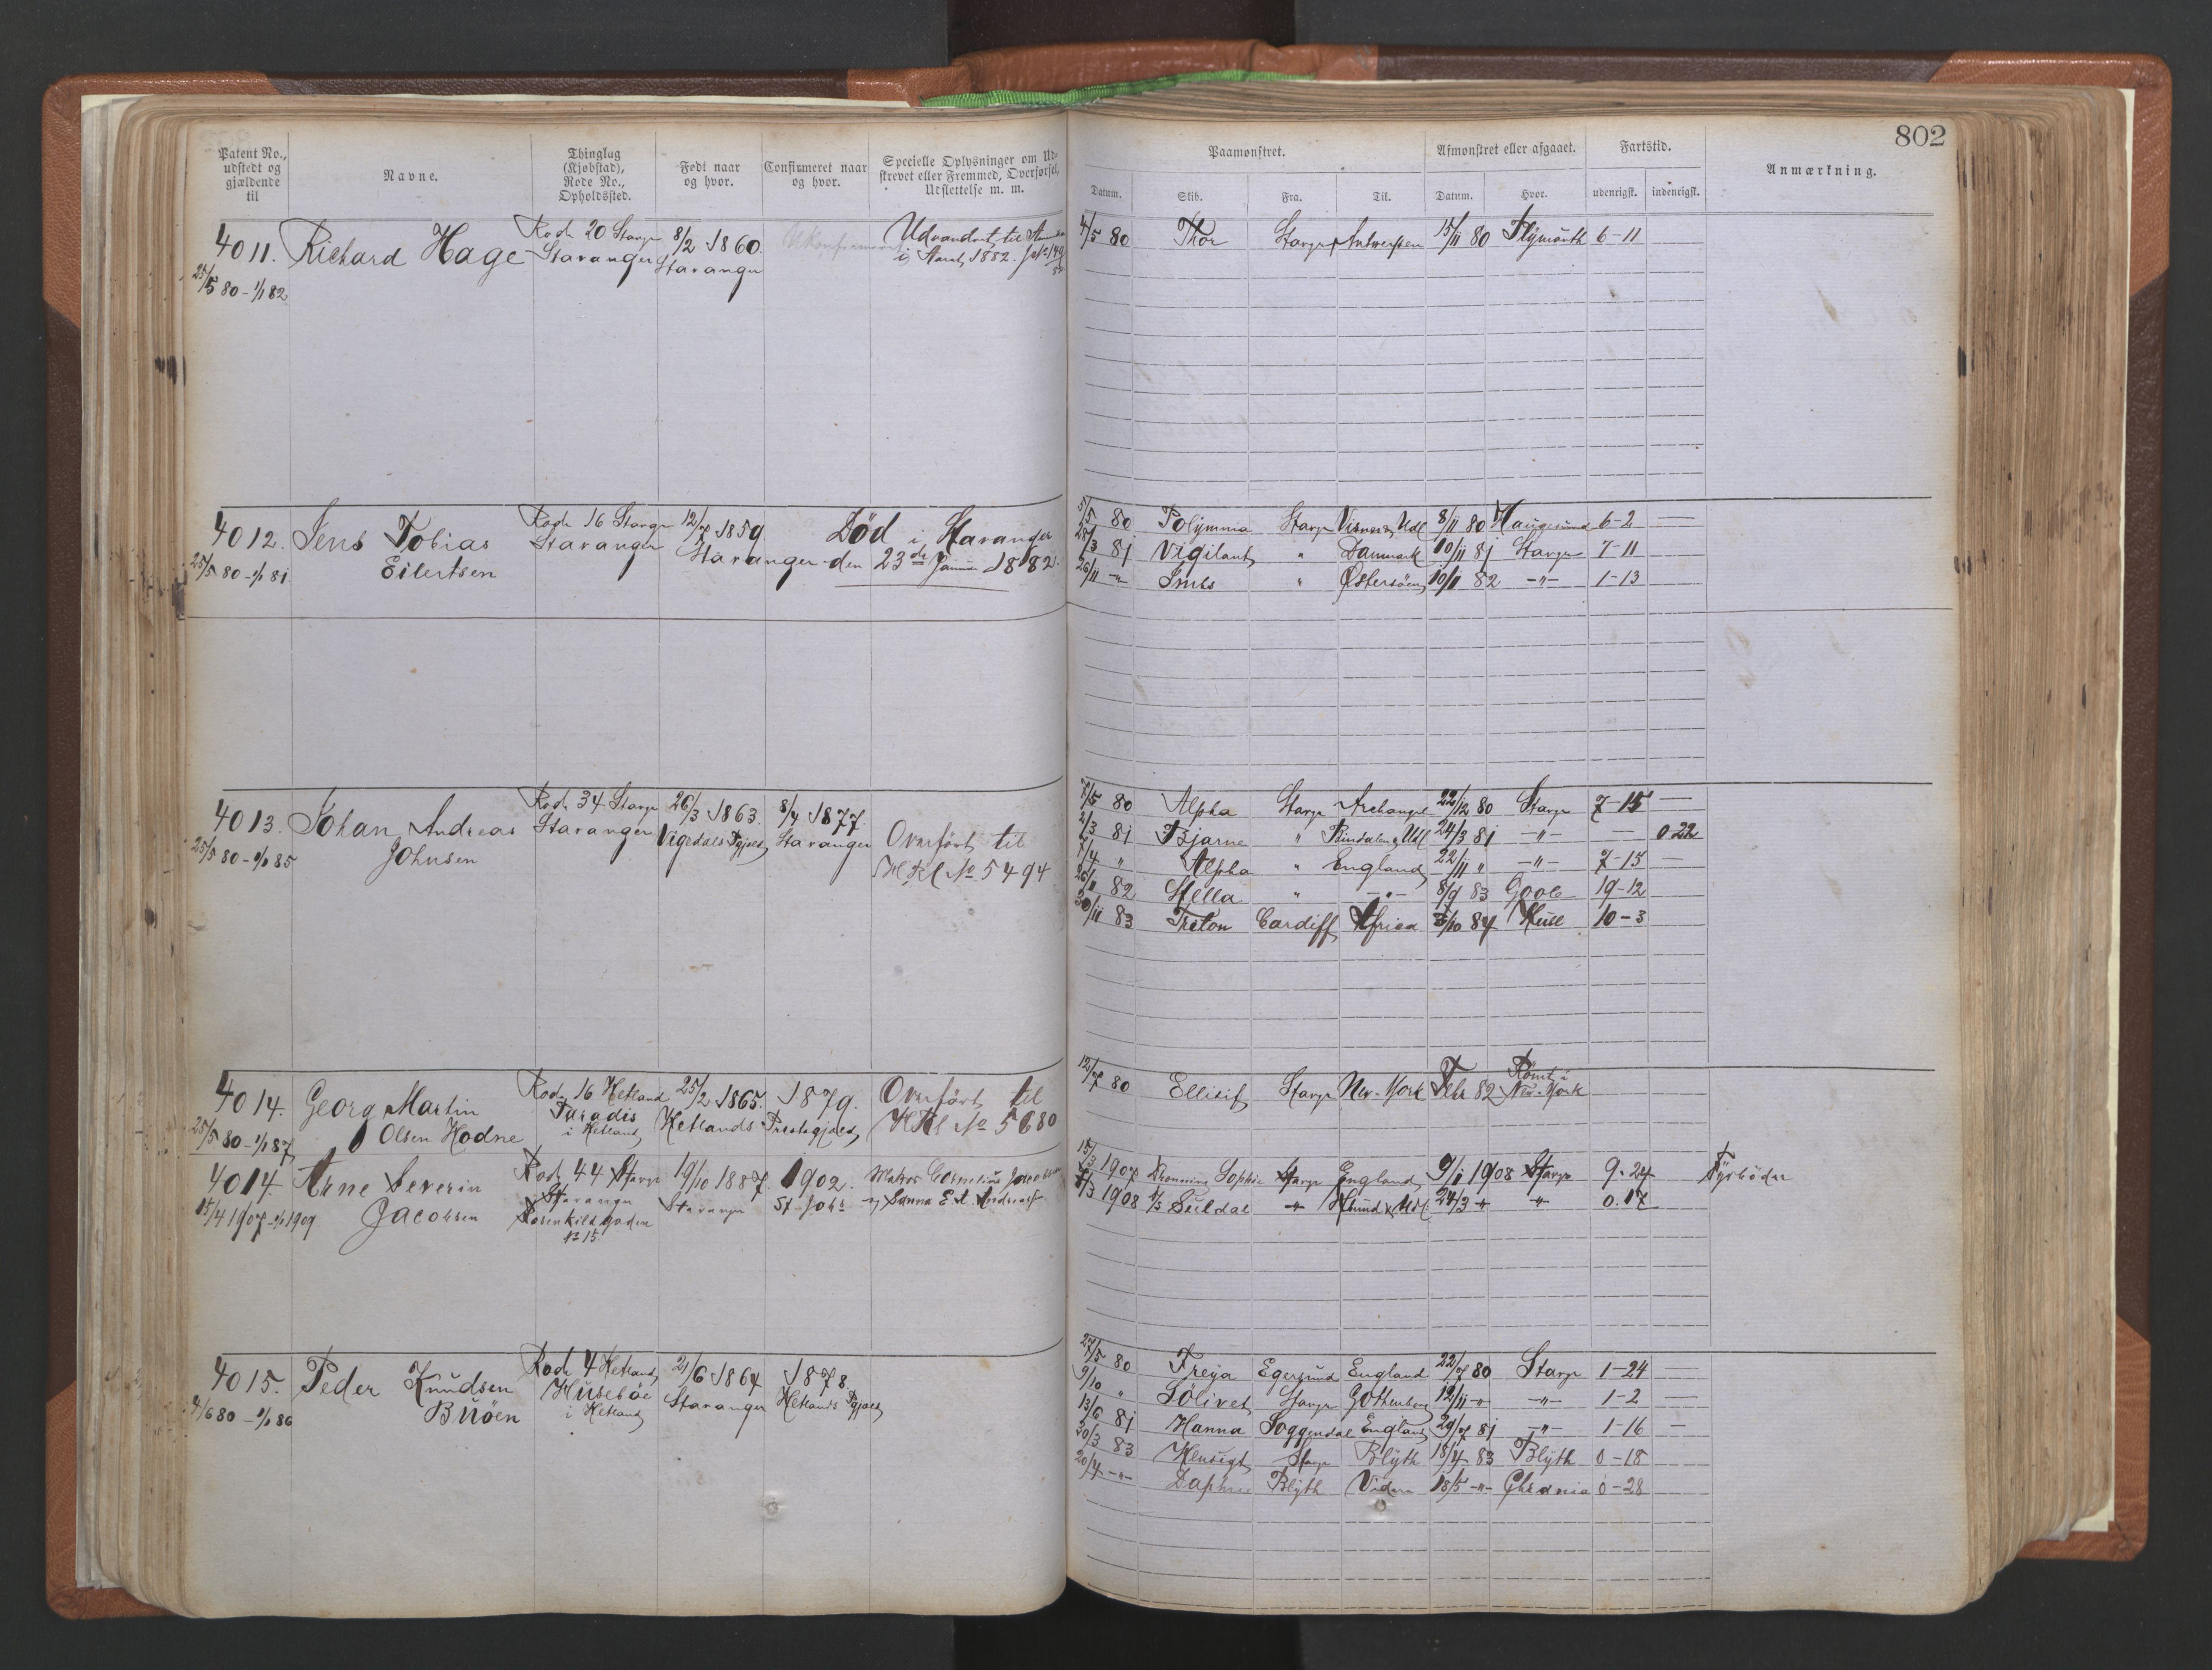 802
Patent No., udstedt og gjældende til
Navne.
Thinglag (Kjøbstad), Rode No., Opholdssted.
Født naar og hvor.
Confirmeret naar og hvor.
Specielle Oplysninger om Udstrevet eller Fremmed, Overførsel, Udslettelse m. m.
Paamønstret.
Afmønstret eller afgaaet.
Fartstid.
Anmærkning.
Datum. Skib. Fra. Til. Datum. Hvor. udenrigsk. indenrigsk.
4011. Richard Hage Rode 20 Stavgr 8/2 1860. Udvandret til
25/5 80 - 1/1 82 Stavanger Stavanger i 1882.
4/5 80 Thor Stavgr Antwerpen 15/11 80 Plymouth 6-11
4012. Jens Tobias Rode 16 Stavgr 12/7 1859 Død i Stavanger
25/5 80 - 1/1 81 Eilertsen Stavanger Stavanger den 23de 1882.
5/5 80 Polymnia Stavgr Udl 8/11 80 Haugesund 6-2 —
25/3 81 Vigilant " Danmark 10/11 81 Stavgr 7-11 —
26/11 -"- " Østersøen 10/11 82 -"- 1-13
4013. Johan Andreas Rode 34 Stavgr 26/3 1863. 8/4 1877. Overført til
25/5 80 - 1/1 85 Johnsen Stavanger Vigedals Pgjæld Stavanger No 5494
7/5 80 Alpha Stavgr Archangel 22/12 80 Stavgr 7-15 —
2/3 81 Bjarne " Udl 24/3 81 -"- — 0 22
7/4 " Alpha " England 22/11 " -"- 7-15 —
26/11 82 Stella " -"- 8/9 83 Goole 19-12
30/11 83 Triton Cardiff Africa /10 84 Hull 10-3
4014. Georg Martin Rode 16 Hetland 25/2 1865. 1879. Overført til
25/5 80 - 1/1 87 Olsen Hodne Paradis i Hetland Hetlands Prestegjæld No 5680
12/7 80 Ellisif Stavgr New-York Febr 82 Rømt i New-York
4014. Arne Severin Rode 44 Stavgr 19/10 1887. 1902. Matros Cornelius Jacobsen
15/4 1907 - 1/1 1909 Jacobsen Stavanger Rosenkildegaden No 15. Stavanger St. Johs
15/3 1907 Dronning Sophie Stavgr England 9/1 1908 Stavgr 9-24 Fyrbøder
1908 Suldal -"- Udl. 24/3 -"- " 0.17
4015. Peder Knudsen Rode 4 Hetland 21/6 1864 1878.
4/6 80 - 1/1 86 Buøen Husebøe i Hetland Stavanger Hetlands Pgjæld
27/5 80 Freya Egersund England 22/7 80 Stavgr 1-24 —
9/10 " Solivet Stavgr Gothenborg 12/11 -"- -"- 1-2 —
13/6 81 Hanna Soggendal England 29/7 81 -"- 1-16 —
20/3 83 Hensigt Stavgr Blyth 18/4 83 Blyth 0-18
20/4 -"- Daphne Blyth 18/5 -"- Chrania 0-28